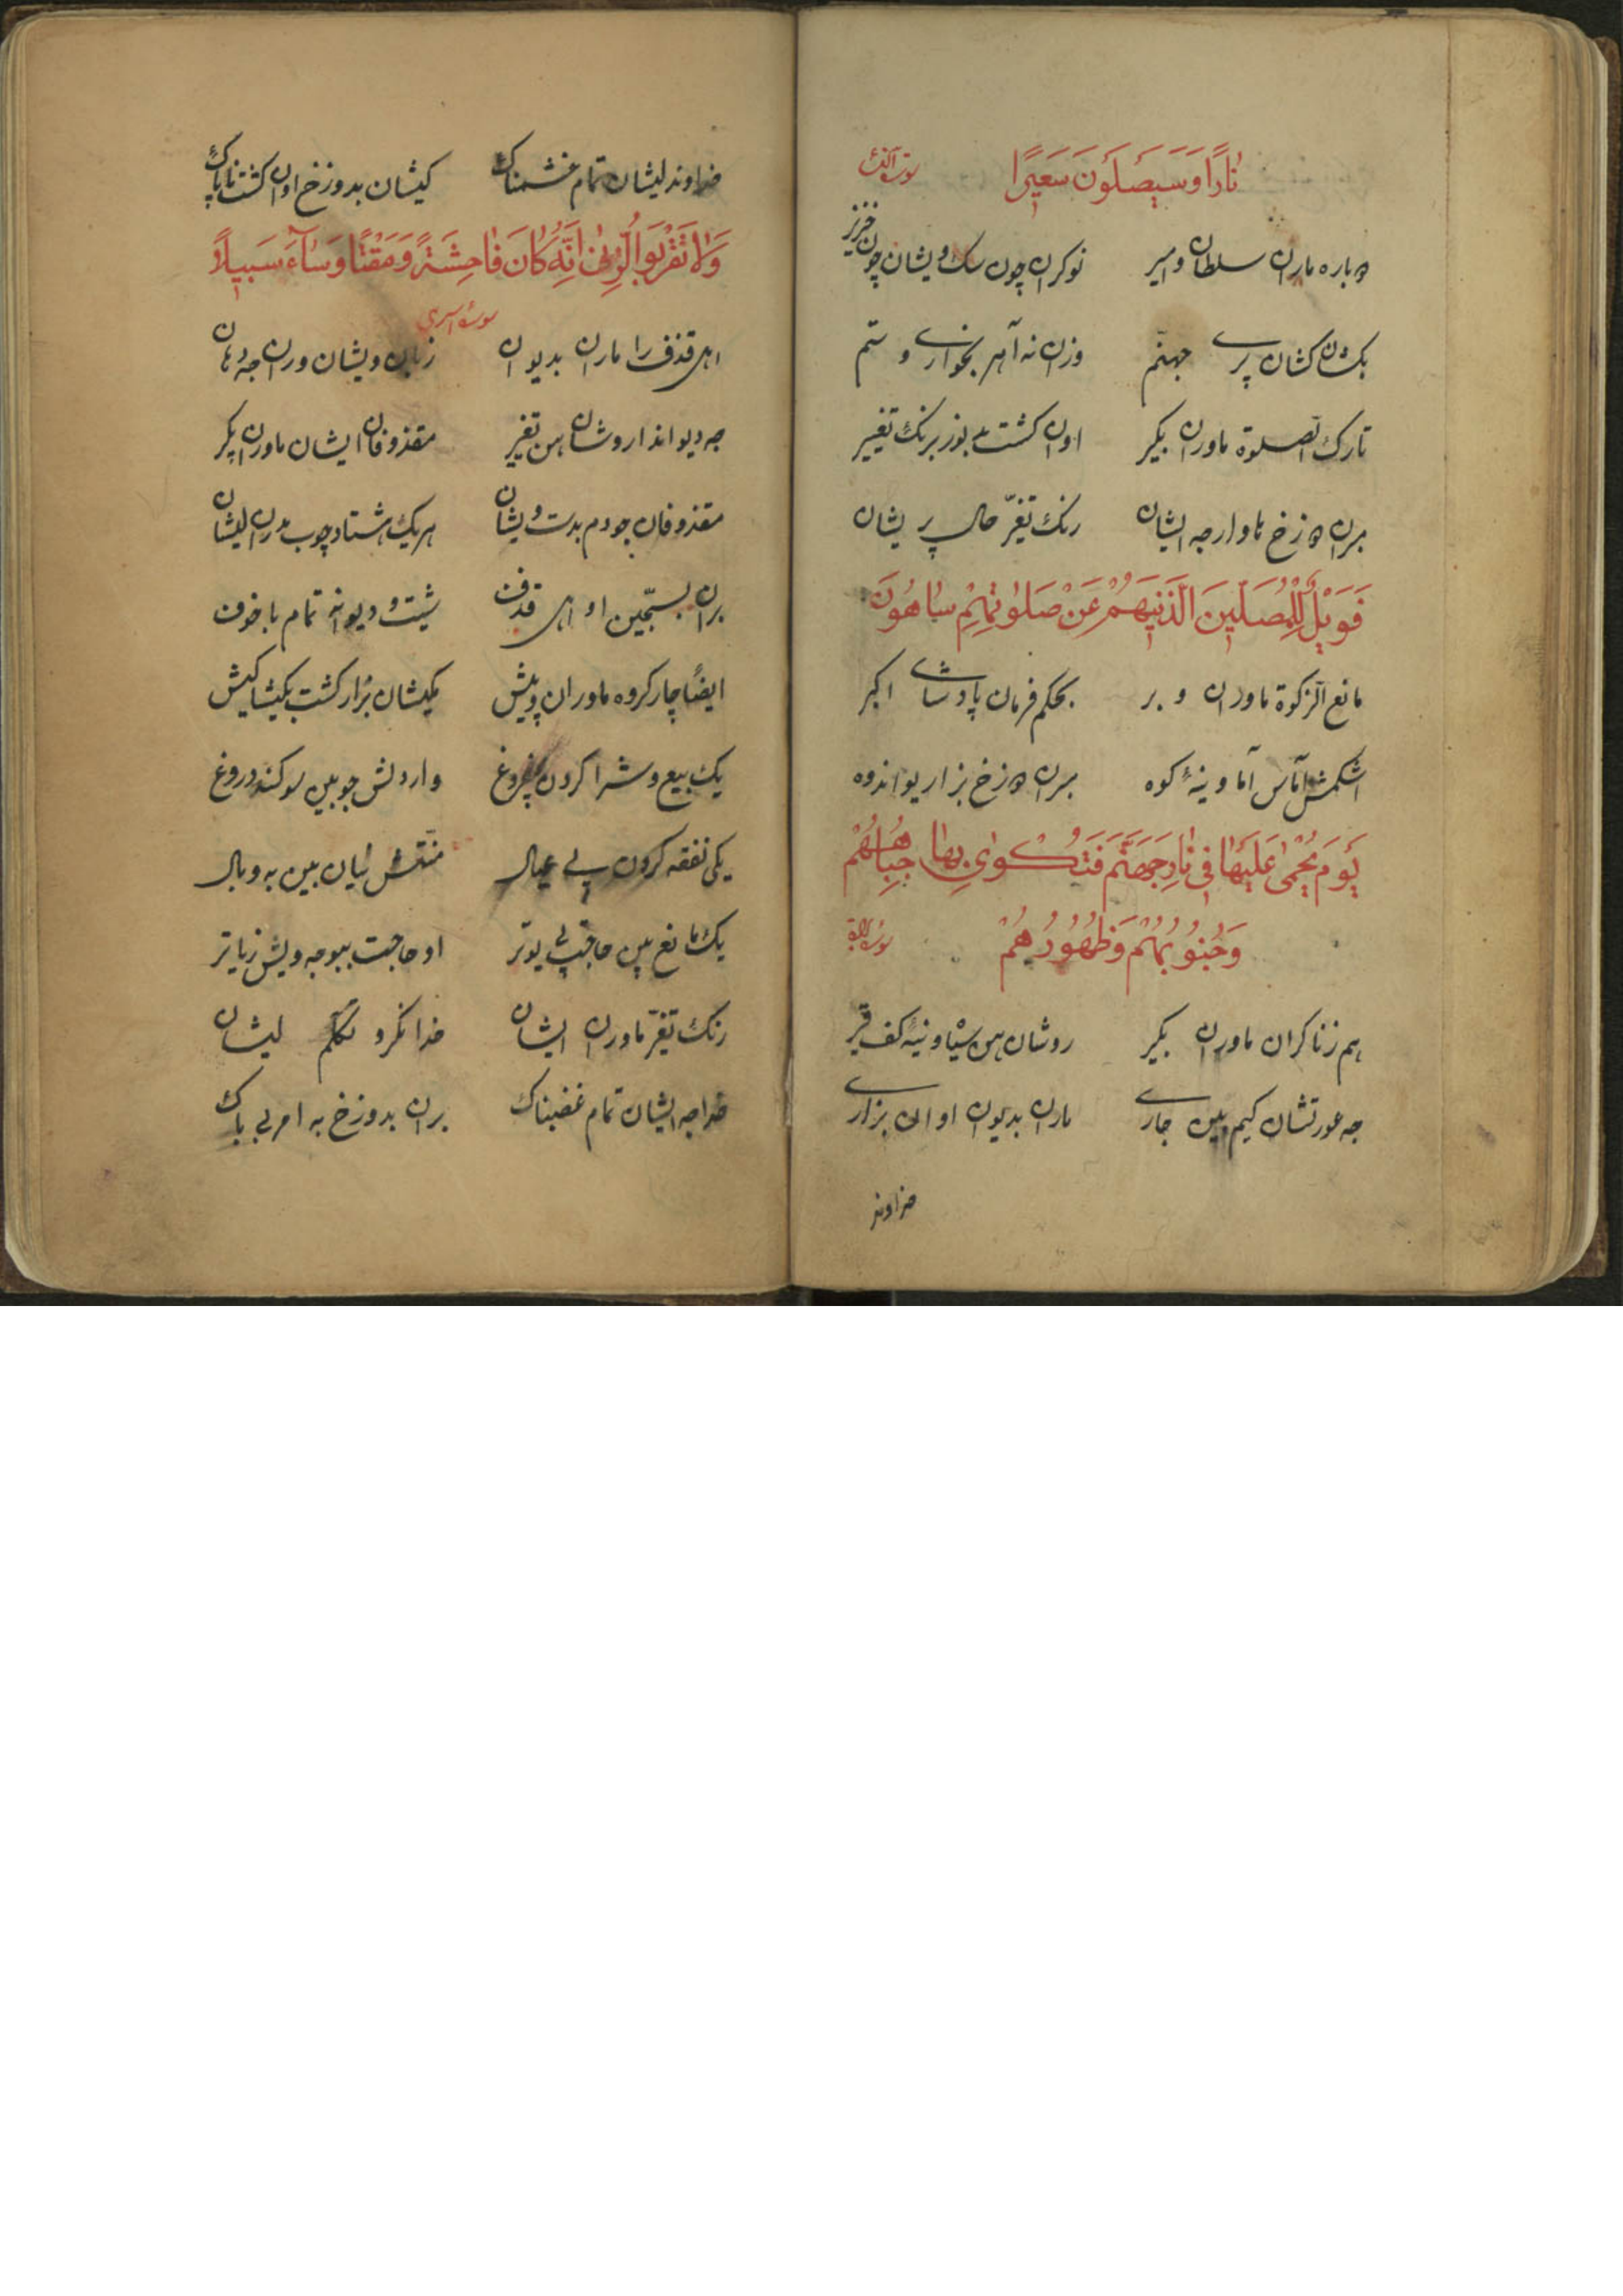 نَارًا وَسَيَصْلَوْنَ سَعِيرًا
دباره مارن سلطان و امیر نوکران چون سک ویشان چون خنزیر
بکشان کشان پری جهنّم وزن نه آهر بخواری و ستم
تارک الصلوة ماورن بکیر اون کشت بزیر رنک تغییر
برن دوزخ ماوار جه ایشان رنک تغیّر حال پریشان
فَوَيْلٌ لِلْمُصَلِّينَ الَّذِينَ هُمْ عَنْ صَلَوٰتِهِمْ سَاهُونَ
مانع الزکوة ماورن و بر بحکم فرمان پادشای اکبر
اشکمش آماس آما وینهٔ کوه برن دوزخ بزار یو اندوه
يَوْمَ يُحْمَىٰ عَلَيْهَا فِي نَارِ جَهَنَّمَ فَتُكْوَىٰ بِهَا جِبَاهُهُمْ
وَجُنُوبُهُمْ وَظُهُورُهُمْ
هم زناکران ماورن بکیر روشان هن سیاه وینهٔ کف قیر
جه عورتشان کیم بین جاری مارن بدیون او الی بزاری
خداوند
خداوند لیشان تمام خشمناک کیشان بدوزخ اون کشت ناپاک
وَلَا تَقْرَبُوا الزِّنَا إِنَّهُ كَانَ فَاحِشَةً وَمَقْتًا وَسَاءَ سَبِيلًا
سورهٔ اسری
اهل قذف را مارن بدیون زبان ویشان ورن جه دهان
جه دیو اندا روشان هن تغیر مقذوفان ایشان ماورن یکر
مقذوفان چو دم بدست ویشان هر یک هشتاد چوب مدرن لیشان
برن بسجّین او اهل قذف شیت و دیوانه تمام با خوف
ایضًا چار کروه ماوران و پیش یکیشان بزار کشت یکیشا کیش
یک بیع و شرا کردن بفروغ واردنش جو بین سوکند دروغ
یکی نفقه کردن پی عیال منّتش لیان بین به وبال
یک مانع بین حاجت پی یوتر او حاجت ببو جه ویش زیاتر
رنک تغیّر ماورن ایشان خدا نکرو تکلّم لیشان
خدا جه ایشان تمام غضبناک برن بدوزخ به امر بی باک